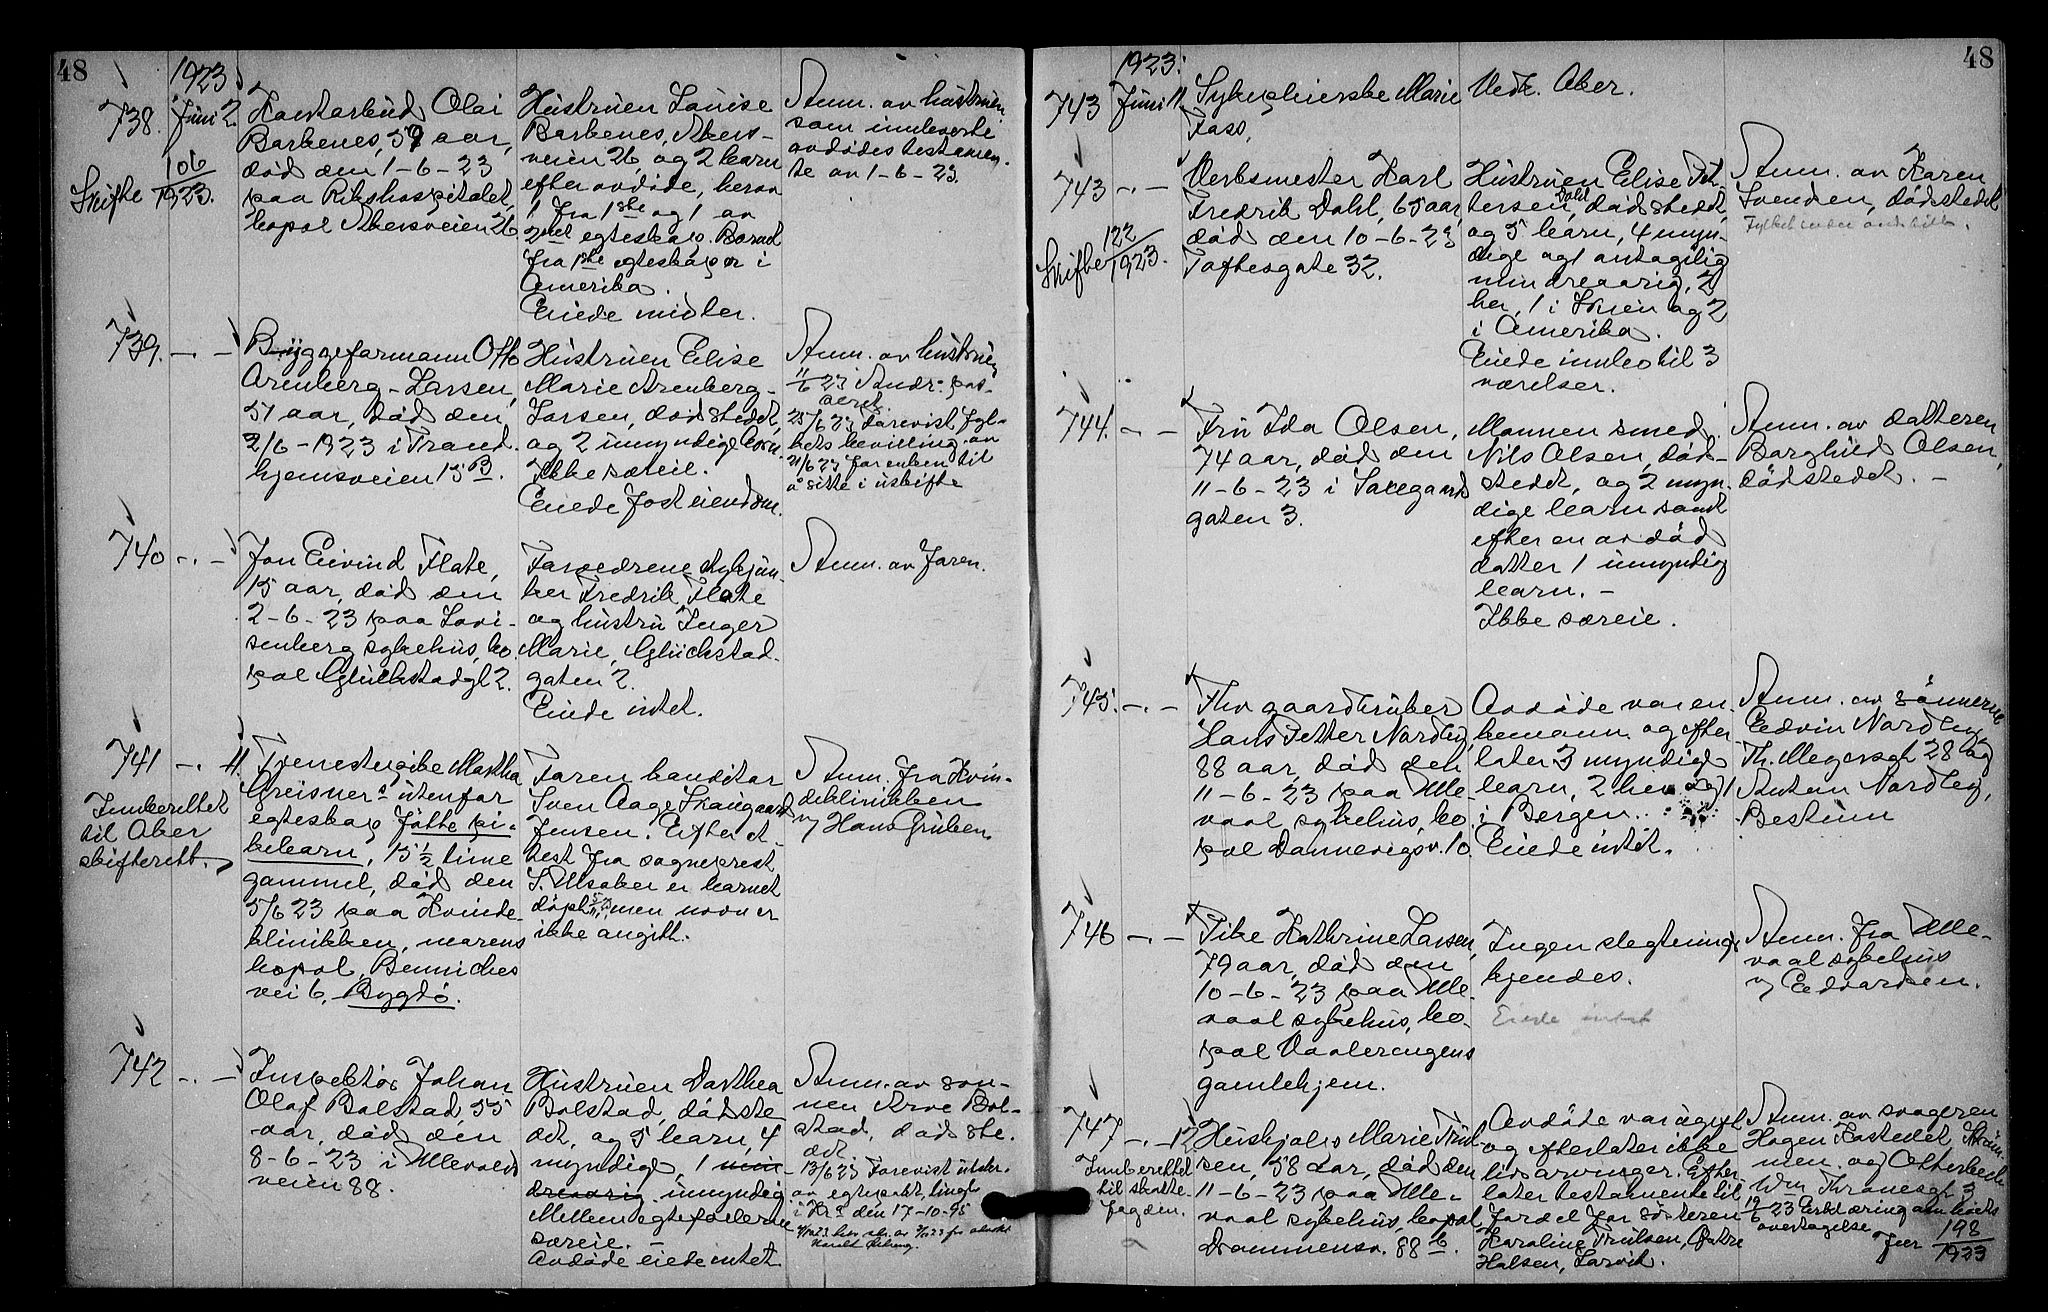 48
1923
738. Juni 2
Kontorbud Olai
Barbenes, 59 aar,
død den 1-6-23
paa Rikshospitalet,
bopæl Akersveien 26
Skifte 106/1923.
Hustruen Louise
Barbenes, Akers-
veien 26, og 2 barn
efter avdøde, herav
1 fra 1ste og 1 av
2net egteskap. Barnet
fra 1ste egteskap er i
Amerika.
Eiede midler.
Anm. av hustruen
som innleverte
avdødes testamen-
te av 1-6-23.
739. -.-
Bryggeformann Otto
Arenberg-Larsen,
51 aar, død den
2/6-1923 i Trond-
hjemsveien 15 B.
Hustruen Elise
Marie Arenberg-
Larsen, dødstedet,
og 2 umyndige barn.
Ikke særeie.
Eiede fast eiendom.
Anm. av hustruen
11/6 23
25/6 23 Forevist fyl-
kets bevilling av
21/6 23 for enken til
å sitte i uskifte
740 -.-
Jon Eivind Flate,
15 aar, død den
2-6-23 paa Lovi-
senberg sykehus, bo-
pæl Glückstadgt 2.
Forældrene
Fredrik Flate
og hustru Inger
Marie, Glückstad-
gaten 2.
Eiede intet.
Anm. av faren.
741 -.- 11.
Innberettet
til Aker
skifterett.
Tjenestepike Martha
Greisners utenfor
egteskap fødte pi-
kebarn, 15 1/2 time
gammel, død den
5/6 23 paa Kvinde-
klinikken, morens
bopæl, Benniches
vei 6, Bygdø.
Faren konditor
Sven Aage Skaugaard
Jensen. Efter at-
test fra sogneprest
S. Utsaker er barnet
døpt men navn er
ikke angitt.
Anm. fra Kvin-
deklinikken
v/ Hans Gruben.
742 -.-
Inspektør Johan
Olaf Bolstad, 55
aar, død den
8-6-23 i Ullevolds
veien 88.
Hustruen Dorthea
Bolstad, dødste-
det, og 5 barn, 4
myndige, 1 min-
dreaarig. umyndig
Mellem egtefællerne
særeie. -
Avdøde eiede intet
Anm. av søn-
nen Arve Bol-
stad, dødste-
det.
13/6 23 Forevist utskr.
av egtepakt, tinglæst
i Kra den 17-10-95
48
1923.
743 Juni 11
Sykepleierske Marie
Foss,
Vedk. Aker.
743 -.-
Skifte 122/1923.
Verksmester Karl
Fredrik Dahl, 65 aar
død den 10-6-23
Toftesgate 32.
Hustruen Elise Pet-
tersen Dahl, dødstedet,
og 5 barn, 4 myn-
dige og 1 antagelig
mindreaarig, 2
her, 1 i Skien og 2
i Amerika.
Eiede innbo til 3
værelser.
Anm. av Karen
Svendsen, dødstedet
744. -.-
Fru Ida Olsen,
74 aar, død den
11-6-23 i Saxegaard
gaten 3.
Mannen smed
Nils Olsen, død-
stedet, og 2 myn-
dige barn samt
efter en avdød
datter 1 umyndig
barn. -
Ikke særeie.
Anm. av datteren
Borghild Olsen,
dødstedet. -
745. -.-
Fhv gaardbruker
Hans Petter Nordby,
88 aar, død den
11-6-23 paa Ulle-
vaal sykehus, bo-
pæl Dannevigsv. 10.
Avdøde var en-
kemann og efter-
later 3 myndige
barn, 2 her og 1
i Bergen.
Eiede intet.
Anm. av sønnerne
Edvin Nordby,
Th. Meyersgt 28 og
Anton Nordby,
Bestum
746 -.-
Pike Kathrine Larsen,
79 aar, død den
10-6-23 paa Ulle-
vaal sykehus, bo-
pæl Vaalerengens
gamlehjem.
Ingen slegtninge
kjendes.
Eiede intet
Anm. fra Ulle-
vaal sykehus
v/ Edvardsen.
747 -.- 12
Innberettet
til skatte-
fogden.
Hushjelp Marie Truls-
sen, 58 aar, død den
11-6-23 paa Ulle-
vaal sykehus, bopæl
Drammensv. 88 b.
Avdøde var ugift
og efterlater ikke
livsarvinger. Efter-
later testamente til
fordel for søsteren
Karoline Trulsen, Østre
Halsen, Larvik.
Anm. av svogeren
Hagen
men. og Otterbech
Wm Thranesgt 3
19/6 23 Erklæring om boets
overtagelse
Jur 198/1923